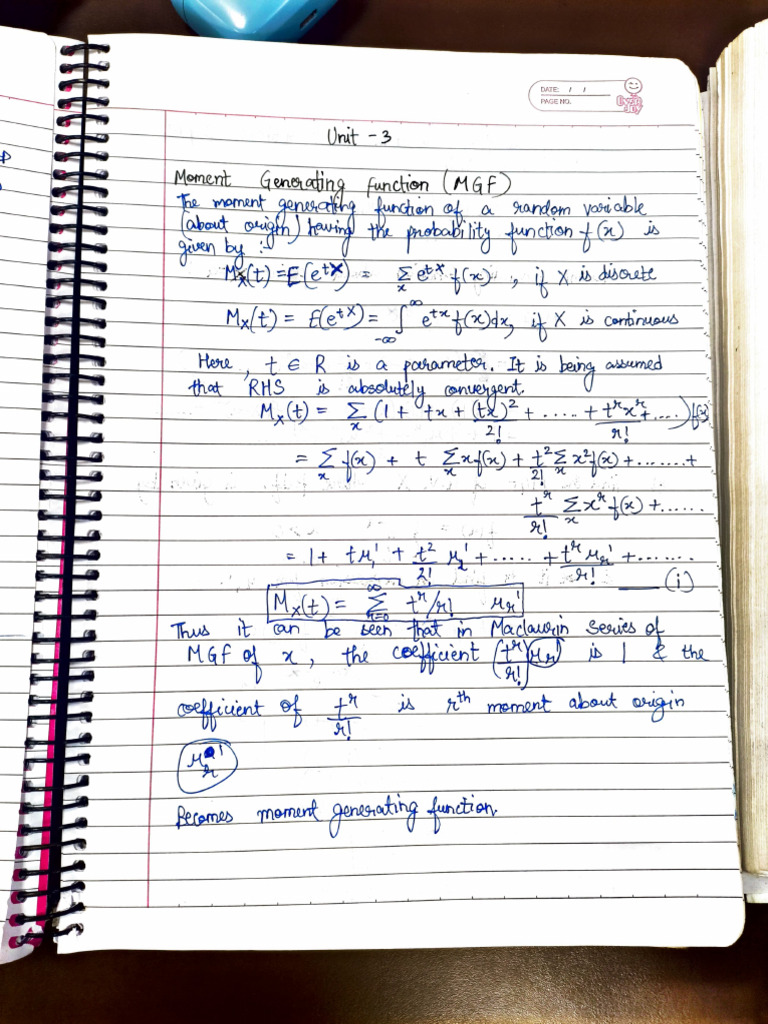 DATE: / /
PAGE NO.
Unit - 3
Moment Generating function (MGF)
The moment generating function of a random variable
(about origin) having the probability function f(x) is
given by :
Mx(t) = E(e^tX) = Σ_x e^tx f(x) , if X is discrete
Mx(t) = E(e^tX) = ∫_-∞^∞ e^tx f(x)dx, if X is continuous
Here, t ∈ R is a parameter. It is being assumed
that RHS is absolutely convergent.
Mx(t) = Σ_x (1 + tx + (tx)^2/2! + ..... + t^r x^r/r! + ....) f(x)
= Σ_x f(x) + t Σ_x xf(x) + t^2/2! Σ_x x^2 f(x) + ....... +
t^r/r! Σ_x x^r f(x) + ......
= 1 + tμ1' + t^2/2! μ2' + ..... + t^r μr'/r! + ....... (i)
Mx(t) = Σ_r=0^∞ t^r/r! μr'
Thus it can be seen that in Maclaurin series of
MGF of x, the coefficient (t^r/r!) μr' is 1 & the
coefficient of t^r/r! is rth moment about origin
μr'
Becomes moment generating function.